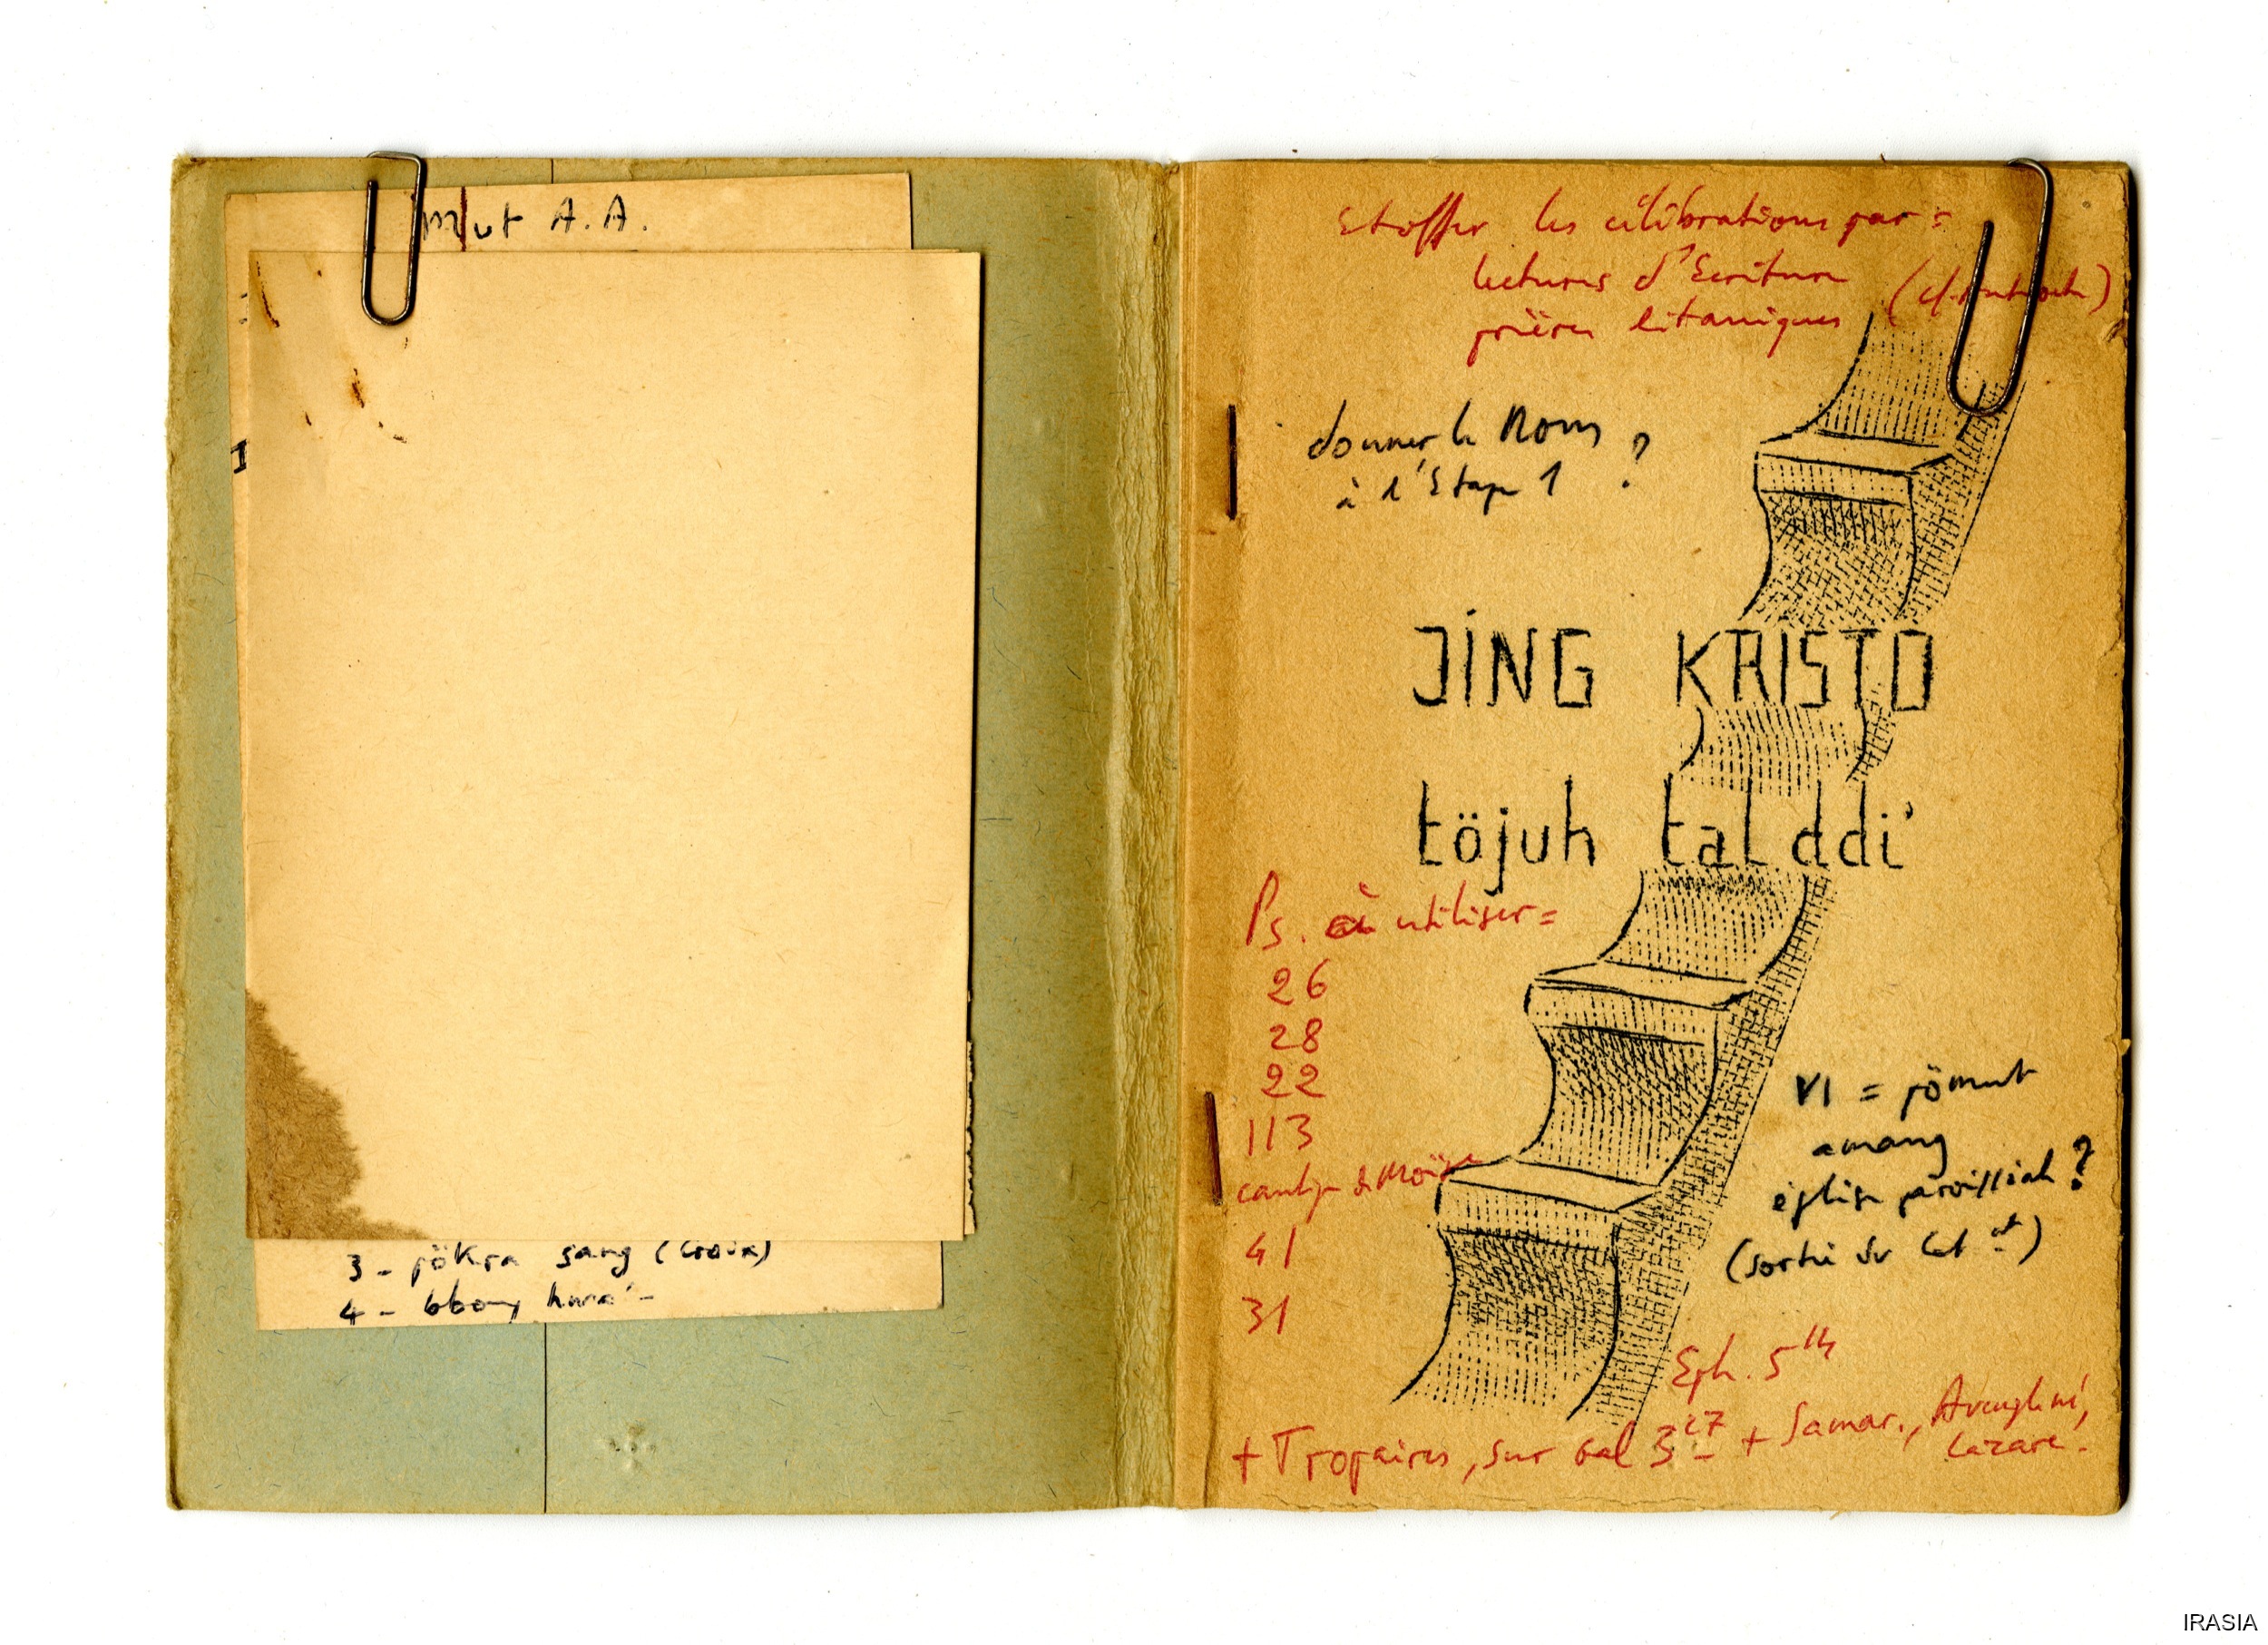 Mut A.A.
3 - pökra sang (Croix)
4 - bbong hura' -
Etoffer les célébrations par =
lectures d'Ecriture
prières litaniques (cf.
donner le Nom
à l'Etape 1 ?
JING KRISTO
töjuh tal ddi'
Ps. à utiliser =
26
28
22
113
cantiq de Moïse
41
31
VI = pömut
amang
église paroissiale ?
(sortie du Cat at)
Eph. 5 14
+ Tropaires, sur Gal 3 27 + Samar., Aveugle né,
Lazare.
IRASIA